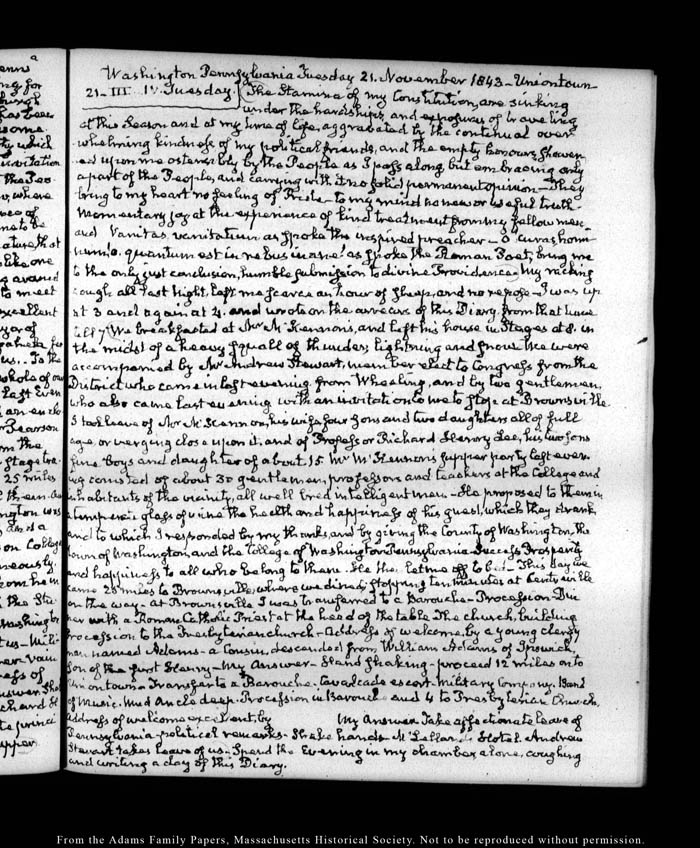 Washington Pennsylvania Tuesday 21. November 1843 – Uniontown
21 – III. IV. Tuesday. The Stamina of my Constitution, are sinking
under the hardships, and exposures of traveling
at this Season and at my time of life, aggravated by the continual over
whelming kindness of my political friends, and the empty honours shower
ed upon me ostensibly by the People as I pass along but embracing only
a part of the People, and carrying with it no solid permanent opinion – They
bring to my heart no feeling of Pride – to my mind no new or useful truth –
Momentary joy at the experience of kind treatment from my fellow men –
and Vanitas vanitatum as spoke the inspired preacher – O curas homi-
num! O. quantum est in rebus inane! as spoke the Roman Poet, bring me
to the only just conclusion, humble submission to divine Providence. My racking
cough all last Night, left me scarce an hour of Sleep, and no repose – I was up
at 3 and again at 4. and wrote on the arrears of this Diary, from that time
till 7. We breakfasted at Mr McKennons, and left his house in Stages at 8. in
the midst of a heavy squall of thunder, lightning and snow. We were
accompanied by Mr Andrew Stewart, member elect to Congress from the
District who came in last evening from Wheeling, and by two gentlemen,
who also came last evening with an invitation to me to stop at Brownsville
I took leave of Mr McKennon, his wife four Sons and two daughters all of full
age, or verging close upon it, and of Professor Richard Henry Lee, his two sons
fine boys and daughter of about 15 Mr McKennons supper party last even
ing consisted of about 30 gentlemen, professors and teachers at the College and
inhabitants of the vicinity, all well bred intelligent men – He proposed to them in
a temperate glass of wine the health and happiness of his guest, which they drank
and to which I responded by my thanks, and by giving the County of Washington, the
town of Washington, and the College of Washington Pennsylvania – Success Prosperity
and happiness to all who belong to them. He then let me off to bed – This day we
came 25 miles to Brownsville, where we dined, stopping ten minutes at Centreville
on the way – at Brownsville I was transferred to a Barouche – Procession – Din
ner with a Roman Catholic Priest at the head of the table The church, building
Procession to the Presbyterian church – Address of welcome by a young clergy
man named Adams – a Cousin, descended from William Adams of Ipswich,
Son of the first Henry – My Answer – Hand shaking – proceed 12 miles on to
Uniontown – Transfer to a Barouche. Cavalcade escort – Military Company. Band
of Music. Mud Ancle deep. Procession in Barouche and 4 to Presbyterian Church,
Address of welcome excellent, by My Answer. Take affectionate leave of
Pennsylvania – political remarks – Shake hands – McClelland's Hotel. Andrew
Stewart takes leave of us. Spend the Evening in my chamber alone, coughing
and writing a day of this Diary.
From the Adams Family Papers, Massachusetts Historical Society. Not to be reproduced without permission.